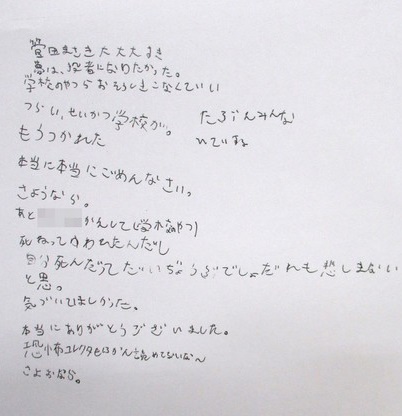 菅田まさき大大大すき
夢は、役者になりたかった。
学校のやつらおそうしきこなくていい
つらい、せいかつ学校が。
もうつかれた
たろぶんみんな
本当に本当にごめんなさいっ
さようなら。
あと かえして(学校のやつ)
死ねっていわれたんだし
自分死んだってだいじょうぶでしょだれも悲しまない
と思。
気づいてほしかった。
本当にありがとうございました。
恐怖コレクター
さよおなら。